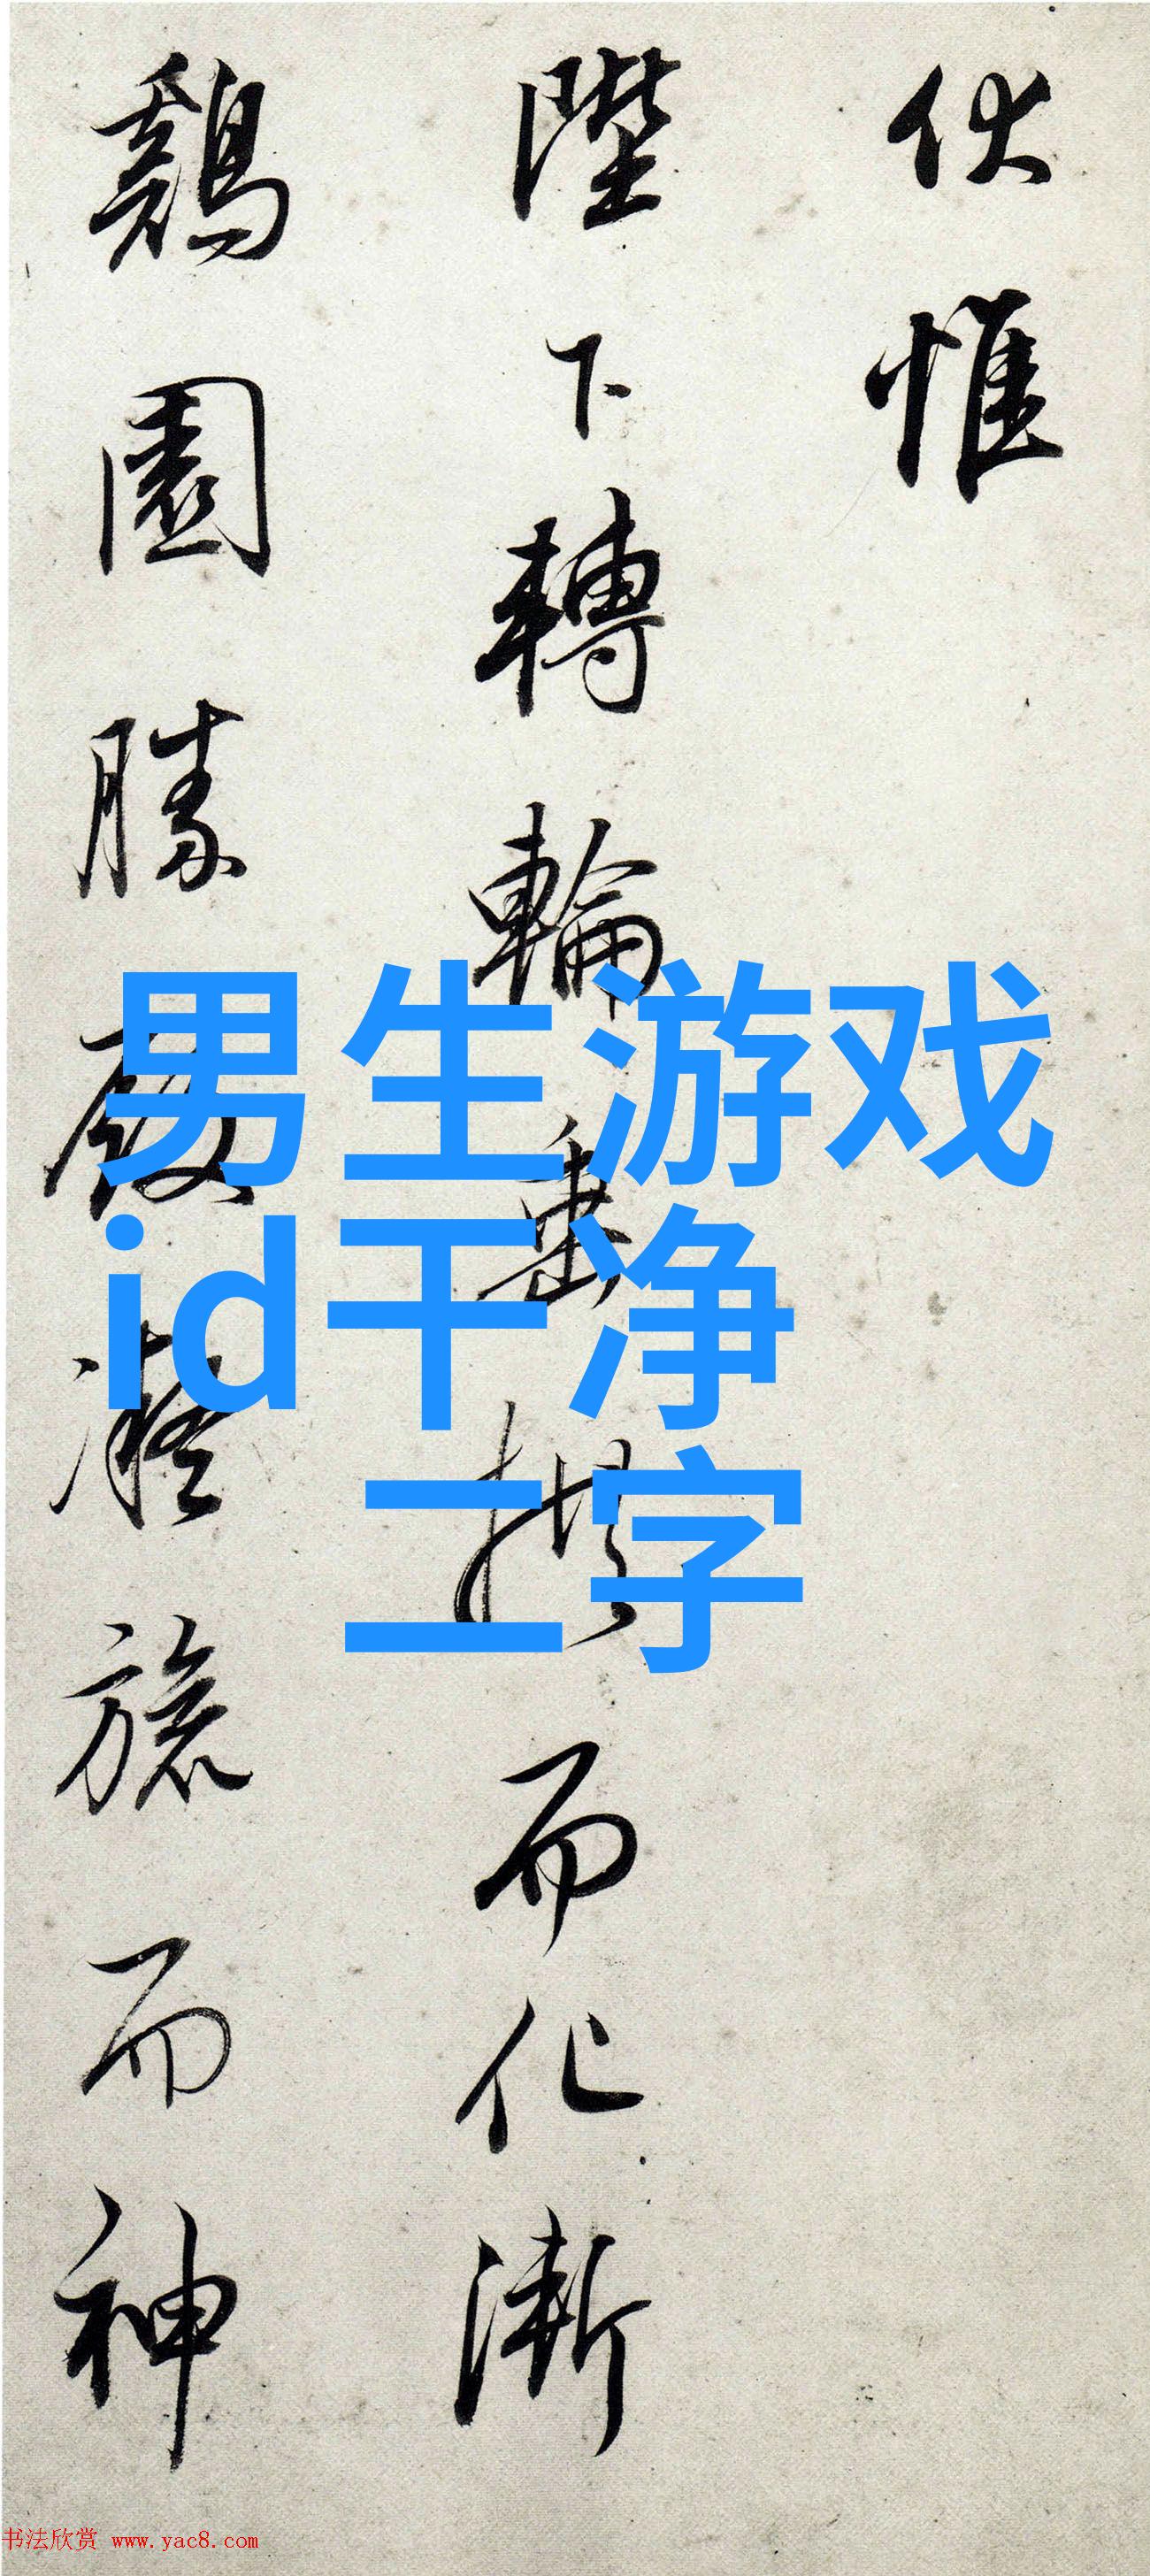 伏惟
陛下轉輪垂拱而化漸
鷄園勝殿凝旒而神
男生游戏
id干净
二字
书法欣赏 www.yac8.com